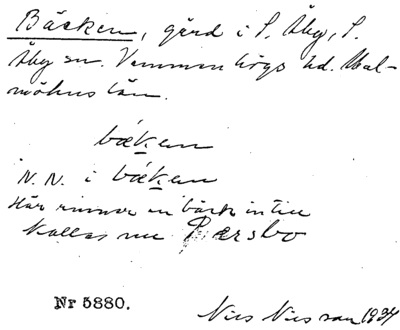 Bäcken, gård i S. Åby, S.
Åby sn. Vemmenhögs hd. Mal-
möhus län.
bæken
N. N. i bæken
Här rinner en bäck intill
Kallas nu Pærsbo
Nr 5880.
Nils Nilsson 1934